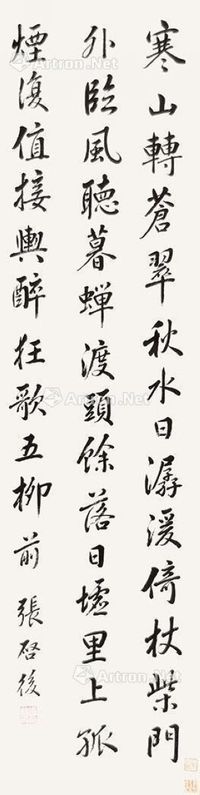 寒山轉蒼翠秋水日潺湲倚杖柴門
外臨風聽暮蟬渡頭餘落日墟里上孤
煙復值接輿醉狂歌五柳前
張啓後